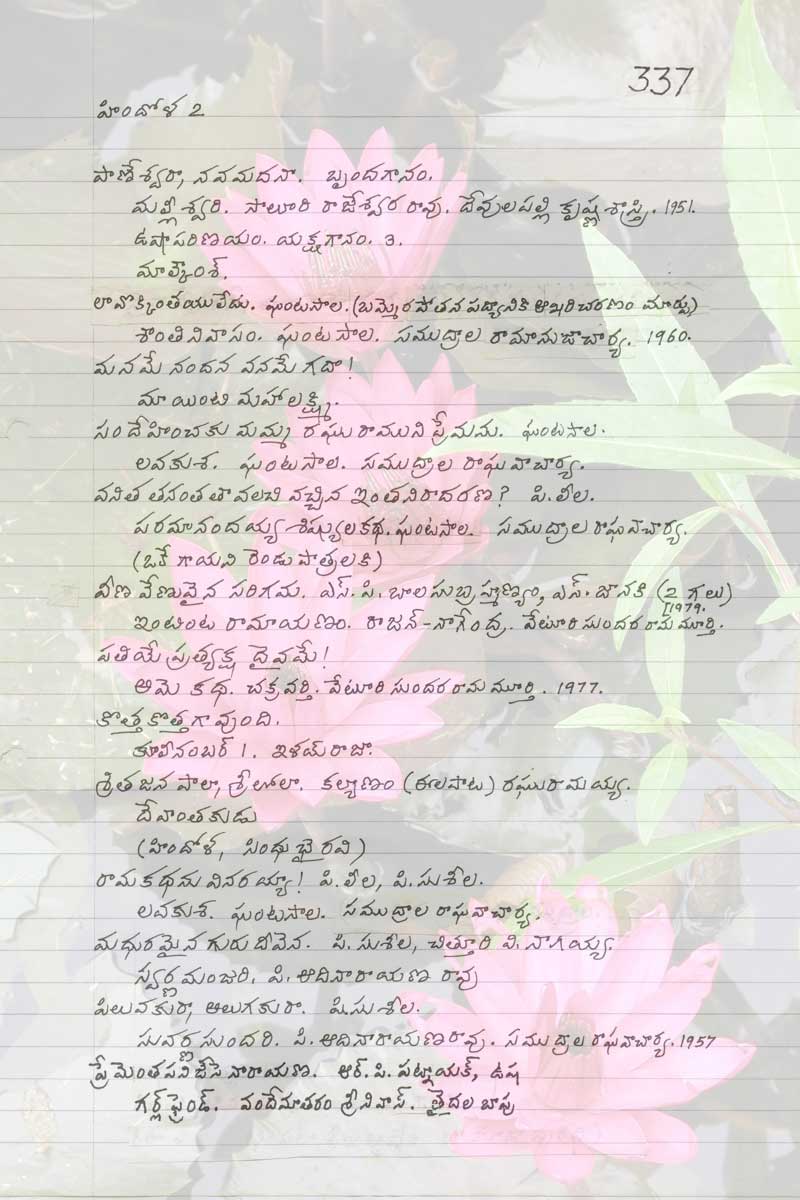 337
హిందోళ 2
పాణేశ్వరా, నవమదనా. బృందగానం.
మల్లీశ్వరి. సాలూరి రాజేశ్వర రావు. దేవులపల్లి కృష్ణ శాస్త్రి. 1951.
ఉషాపరిణయం. యక్షగానం. 3.
మాల్కౌంశ్.
లావొక్కింతయులేదు. ఘంటసాల. (బమ్మెర పోతన పద్యానికి ఆఖరి చరణం మార్పు)
శాంతినివాసం. ఘంటసాల. సముద్రాల రామానుజాచార్య. 1960.
మనమే నందన వనమే గదా!
మా యింటి మహాలక్ష్మి.
సందేహించకు మమ్మ రఘు రాముని ప్రేమను. ఘంటసాల.
లవకుశ. ఘంటసాల. సముద్రాల రాఘవాచార్య.
వనిత తనంత తా వలచి వచ్చిన ఇంత నిరాదరణ? పి. లీల.
పరమానందయ్య శిష్యుల కథ. ఘంటసాల. సముద్రాల రాఘవాచార్య.
(ఒకే గాయని రెండు పాత్రలకి)
వీణ వేణువైన సరిగమ. ఎస్. పి. బాలసుబ్రహ్మణ్యం, ఎస్. జానకి (2 గలు)
1979.
ఇంటింట రామాయణం. రాజన్-నాగేంద్ర. వేటూరి సుందర రామ మూర్తి.
పతియే ప్రత్యక్ష దైవమే!
ఆమె కథ. చక్రవర్తి. వేటూరి సుందర రామ మూర్తి. 1977.
కొత్త కొత్తగా వుంది.
కూలీనంబర్ 1. ఇళయ్ రాజా.
శ్రితజన పాలా, శ్రీలోలా. కల్యాణం (ఈలపాట) రఘురామయ్య.
దేవాంతకుడు
(హిందోళ, సింధుభైరవి)
రామకథను వినరయ్యా! పి. లీల, పి. సుశీల.
లవకుశ. ఘంటసాల. సముద్రాల రాఘవాచార్య.
మధురమైన గురు దీవెన. పి. సుశీల, చిత్తూరి వి. నాగయ్య.
స్వర్ణమంజరి. పి. ఆదినారాయణ రావు
పిలువకురా, అలుగకురా. పి. సుశీల.
సువర్ణసుందరి. పి. ఆదినారాయణరావు. సముద్రాల రాఘవాచార్య. 1957
ప్రేమెంత పనిచేసె నారాయణ. ఆర్. పి. పట్నాయక్, ఉష
గర్ల్ ఫ్రెండ్. వందేమాతరం శ్రీనివాస్. తైదల బాపు